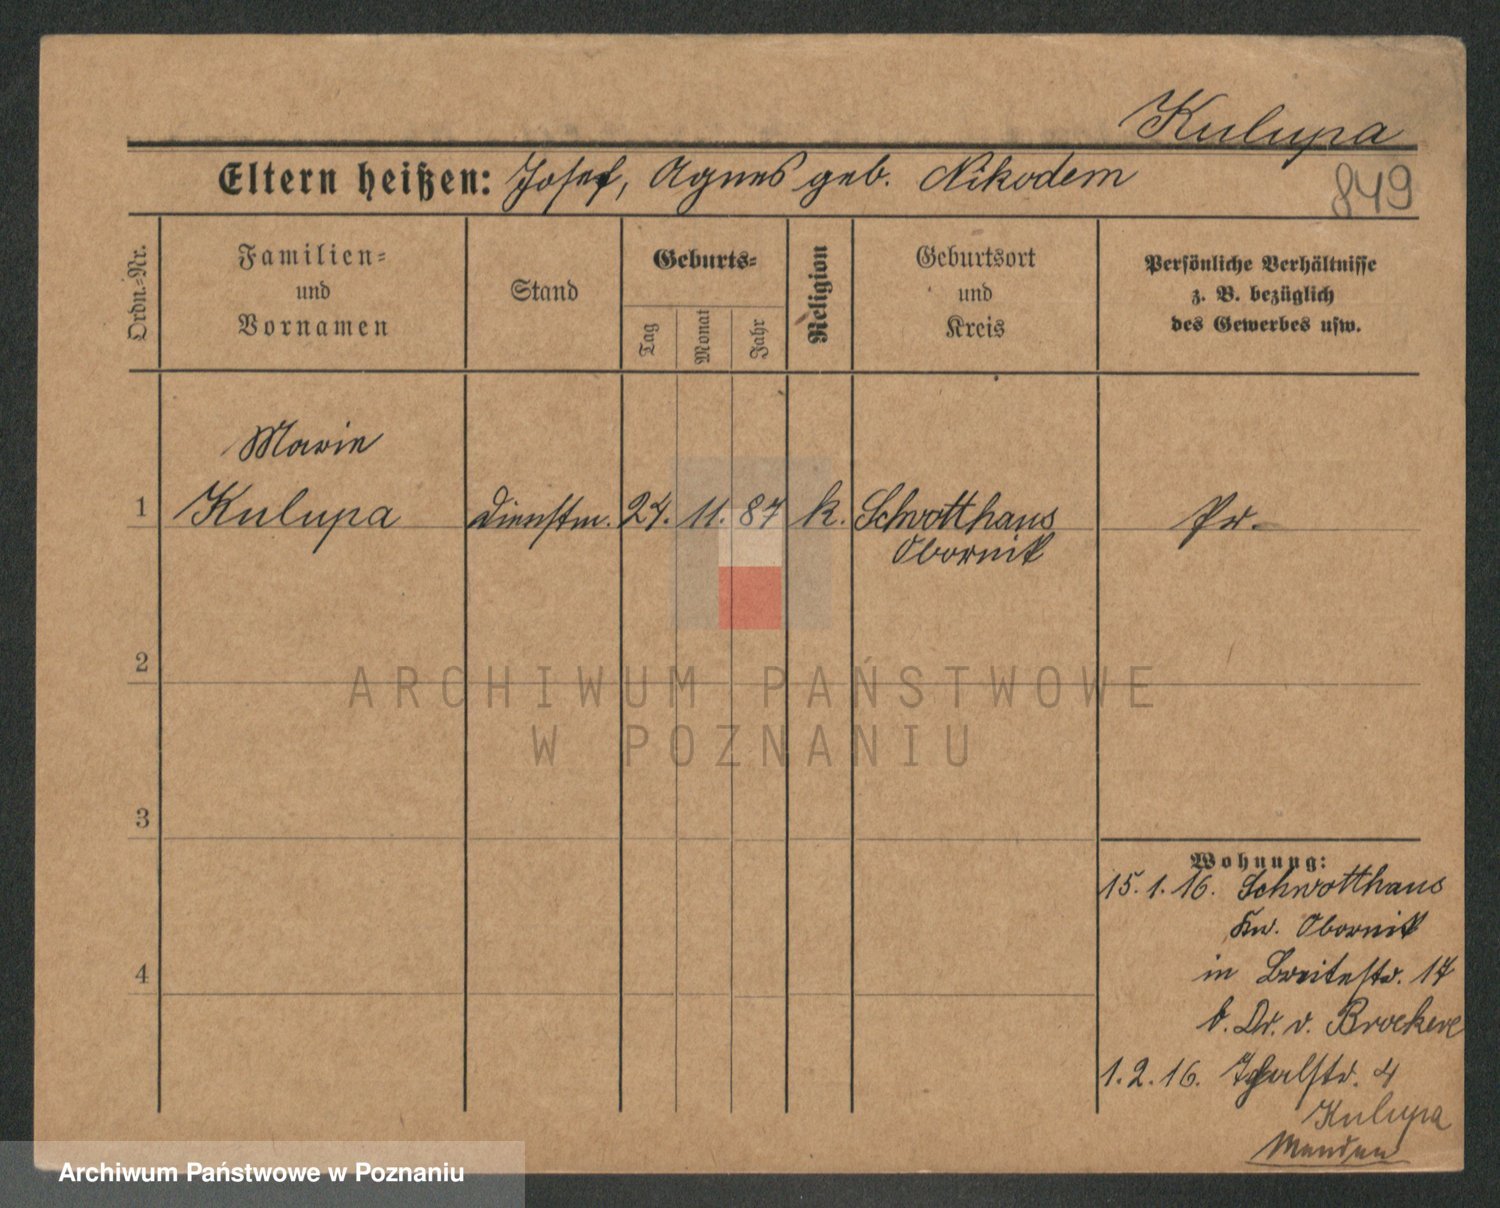 Kulupa
Eltern heißen: Josef, Agnes geb. Nikodem
849
Ordn.-Nr.
Familien-
und
Vornamen
Stand
Geburts-
Tag
Monat
Jahr
Religion
Geburtsort
und
Kreis
Persönliche Verhältnisse
z. B. bezüglich
des Gewerbes usw.
Marie
1 Kulupa Dienstm. 24. 11. 87 k. Schrotthaus Pr.
Obornik
2
ARCHIWUM PAŃSTWOWE
W POZNANIU
3
4
Wohnung:
15. 1. 16. Schrotthaus
Kr. Obornik
in Breitestr. 17
b. Dr. v. Broekere
1. 2. 16. 4
Kulupa
Archiwum Państwowe w Poznaniu